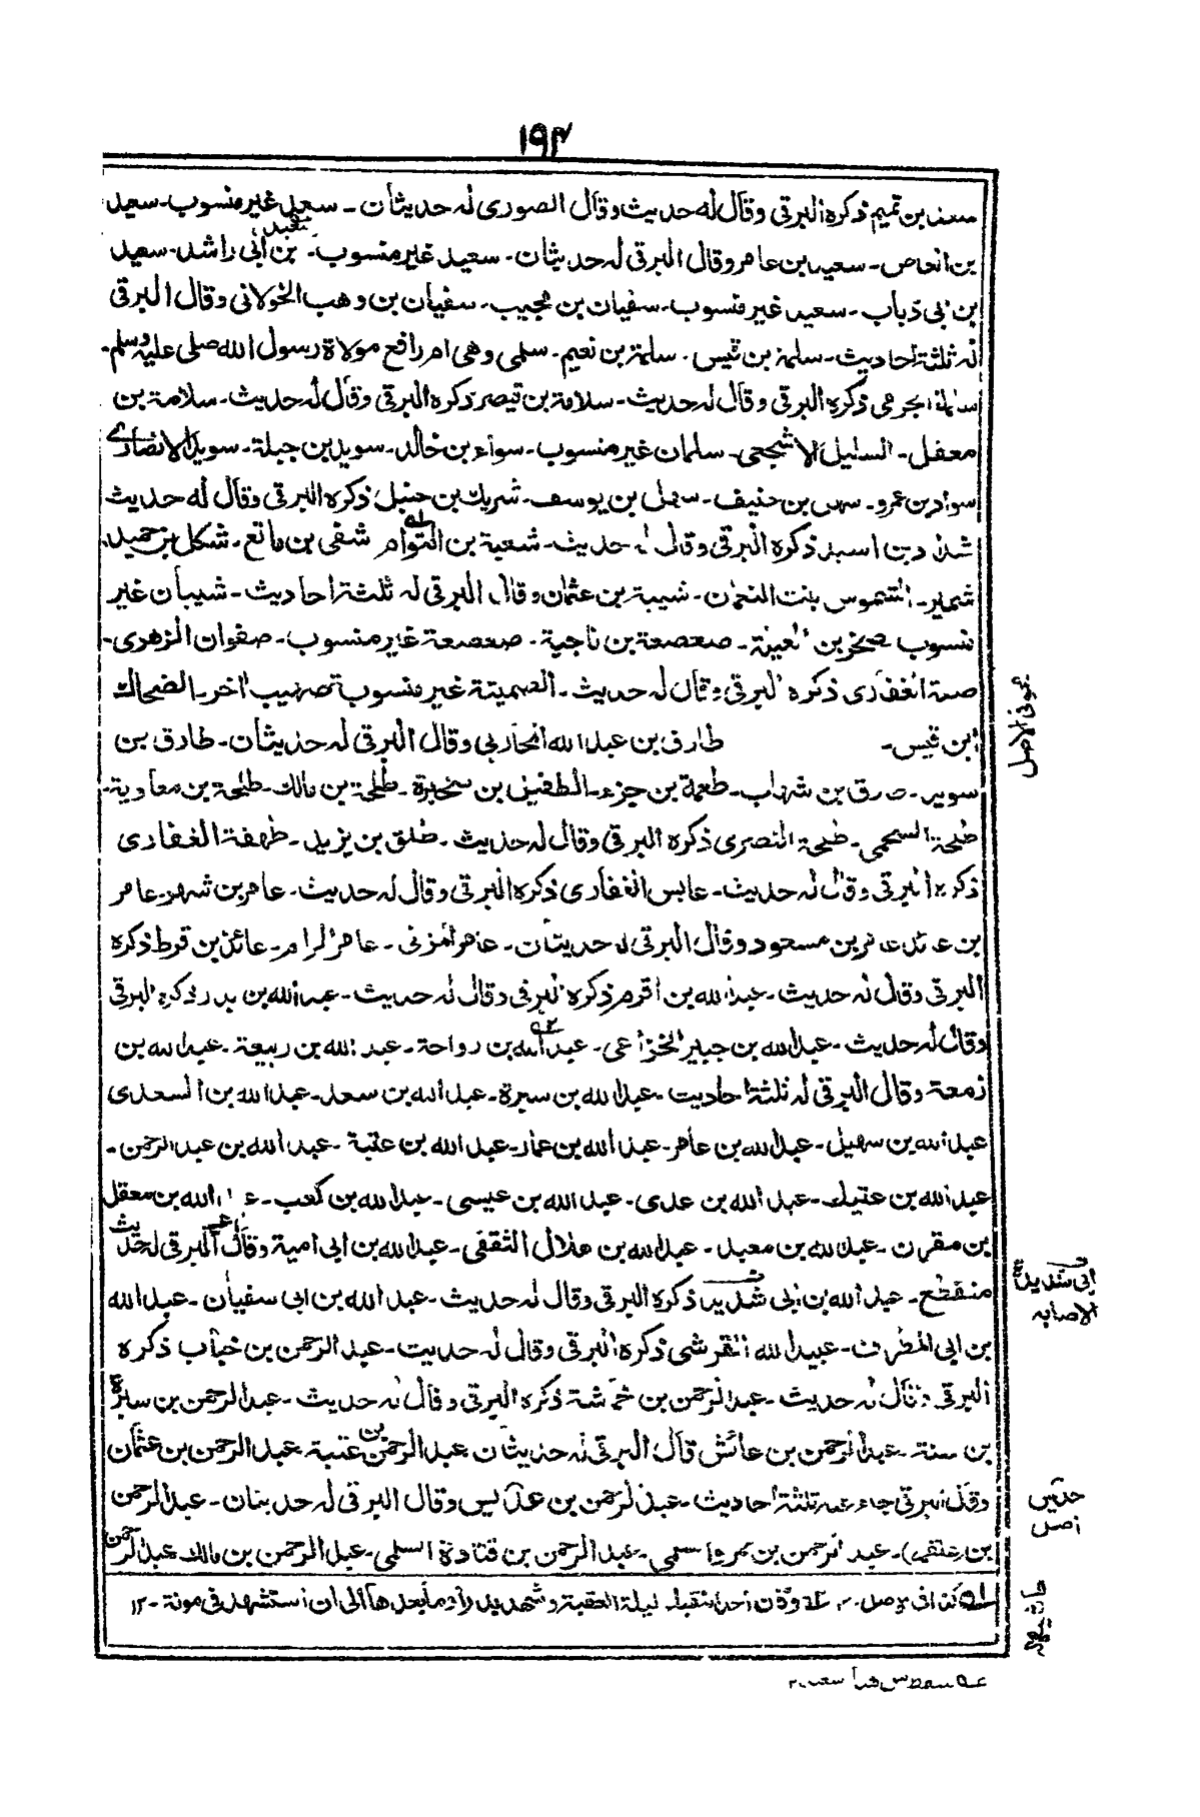 ١٩٤
سند بن تميم ذكره البرقي وقال له حديث وقال الصوري له حديثان - سعيد غير منسوب - سعيد
بن العاص - سعيد بن عامر وقال البرقي له حديثان - سعيد غير منسوب - بن ابى راشد - سعيد
بن ابى ذباب - سعيد غير منسوب - سفيان بن مجيب - سفيان بن وهب الخولاني وقال البرقي
له ثلثة احاديث - سلمة بن قيس - سلمة بن نعيم - سلمى وهي ام رافع مولاة رسول الله صلى عليه وسلم -
سلمة الجرمي ذكره البرقي وقال له حديث - سلامة بن قيصر ذكره البرقي وقال له حديث - سلامة بن
معقل - السليل الاشجعي - سلمان غير منسوب - سواء بن خالد - سويد بن جبلة - سويد الانصارى
سواد بن عمرو - سهل بن حنيف - سهل بن يوسف - شريك بن حنبل ذكره البرقي وقال له حديث
شداد بن اسيد ذكره البرقي وقال له حديث - شعبة بن التوام شفى بن ماتع - شكل بن حميد
شمير - الشموس بنت النعمان - شيبة بن عثمان وقال البرقي له ثلثة احاديث - شيبان غير
منسوب صخر بن العيلة - صعصعة بن ناجية - صعصعة غير منسوب - صفوان الزهرى -
صلة الغفارى ذكره البرقي وقال له حديث - الصميتة غير منسوب صهيب اخر - الضحاك
ابن قيس - طارق بن عبد الله المحاربي وقال البرقي له حديثان - طارق بن
سويد - طارق بن شهاب - طعمة بن جزء - الطفيل بن سخبرة - طلحة بن مالك - طلحة بن معاوية -
طلحة السحمي - طلحة النصرى ذكره البرقي وقال له حديث - طلق بن يزيد - طهفة الغفارى
ذكره البرقي وقال له حديث - عابس الغفارى ذكره البرقي وقال له حديث - عامر بن شهر - عامر
بن عائذ عامر بن مسعود وقال البرقي له حديثان - عامر المزني - عامر الرام - عائذ بن قرط ذكره
البرقي وقال له حديث - عبد الله بن اقرم ذكره البرقي وقال له حديث - عبد الله بن بدر ذكره البرقي
وقال له حديث - عبد الله بن جبير الخزاعي - عبد الله بن رواحة - عبد الله بن ربيعة - عبد الله بن
زمعة وقال البرقي له ثلثة احاديث - عبد الله بن سبرة - عبد الله بن سعد - عبد الله بن السعدى
عبد الله بن سهيل - عبد الله بن عامر - عبد الله بن عمار - عبد الله بن عتبة - عبد الله بن عبد الرحمن -
عبد الله بن عتيك - عبد الله بن عدى - عبد الله بن عيسى - عبد الله بن كعب - الله بن معقل
بن مقرن - عبد الله بن معبد - عبد الله بن هلال الثقفي - عبد الله بن ابى امية وقال البرقي له حديث
منقطع - عبد الله بن ابى شديد ذكره البرقي وقال له حديث - عبد الله بن ابى سفيان - عبد الله
بن ابى المطرف - عبيد الله القرشي ذكره البرقي وقال له حديث - عبد الرحمن بن خباب ذكره
البرقي وقال له حديث - عبد الرحمن بن خماشة ذكره البرقي وقال له حديث - عبد الرحمن بن سبرة
بن سنة - عبد الرحمن بن عائش قال البرقي له حديثان عبد الرحمن بن عتبة عبد الرحمن بن عثمان
وقال البرقي جاء عنه ثلثة احاديث - عبد الرحمن بن عديس وقال البرقي له حديثان - عبد الرحمن
بن علقمة - عبد الرحمن بن عمرو السلمي - عبد الرحمن بن قتادة السلمي - عبد الرحمن بن مالك عبد الرحمن
كذا فى الاصل - ١٢ وكان احد النقباء ليلة العقبة وشهد بدرا وما بعدها الى ان استشهد فى موتة - ١٢
محو فى الاصل
ابى شديد
الاصابه
حديثين
اصل